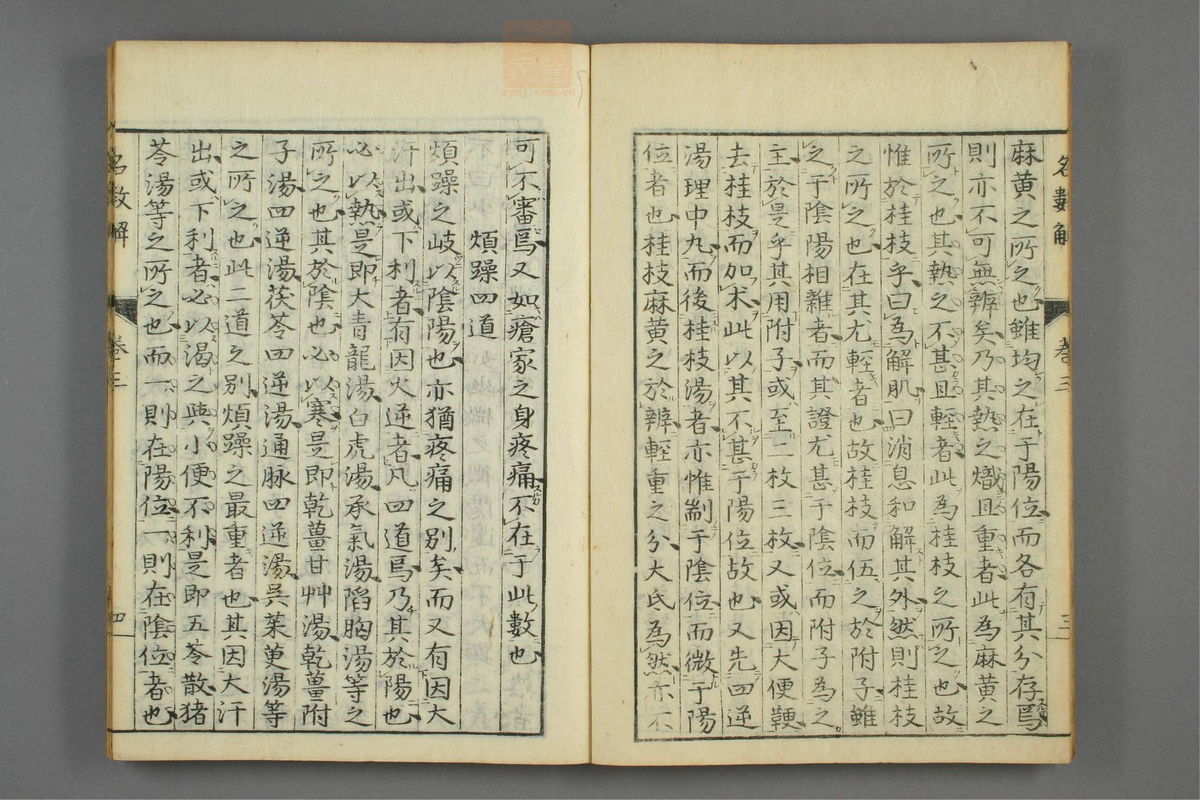 名數解
卷三
三
麻黃之所之也雖均之在于陽位而各有其分存焉
則亦不可無辨矣乃其熱之熾且重者此為麻黃之
所之也其熱之不甚且輕者此為桂枝之所之也故
惟於桂枝乎曰為解肌曰消息和解其外然則桂枝
之所之也在其尤輕者也故桂枝而伍之於附子雖
之于陰陽相雜者而其證尤甚于陰位而附子為之
主於是乎其用附子或至二枚三枚又或因大便鞕
去桂枝而加朮此以其不甚于陽位故也又先四逆
湯理中丸而後桂枝湯者亦惟制于陰位而微于陽
位者也桂枝麻黃之於辨輕重之分大氐為然亦不
可不審焉又如瘡家之身疼痛不在于此數也
煩躁四道
煩躁之岐以陰陽也亦猶疼痛之別矣而又有因大
汗出或下利者有因火逆者凡四道焉乃其於陽也
必以熱是即大青龍湯白虎湯承氣湯陷胸湯等之
所之也其於陰也必以寒是即乾薑甘艸湯乾薑附
子湯四逆湯茯苓四逆湯通脉四逆湯吳茱萸湯等
之所之也此二道之別煩躁之最重者也其因大汗
出或下利者必以渴之與小便不利是即五苓散猪
苓湯等之所之也而一則在陽位一則在陰位者也
名數解
卷三
四
zyyj.com.cn